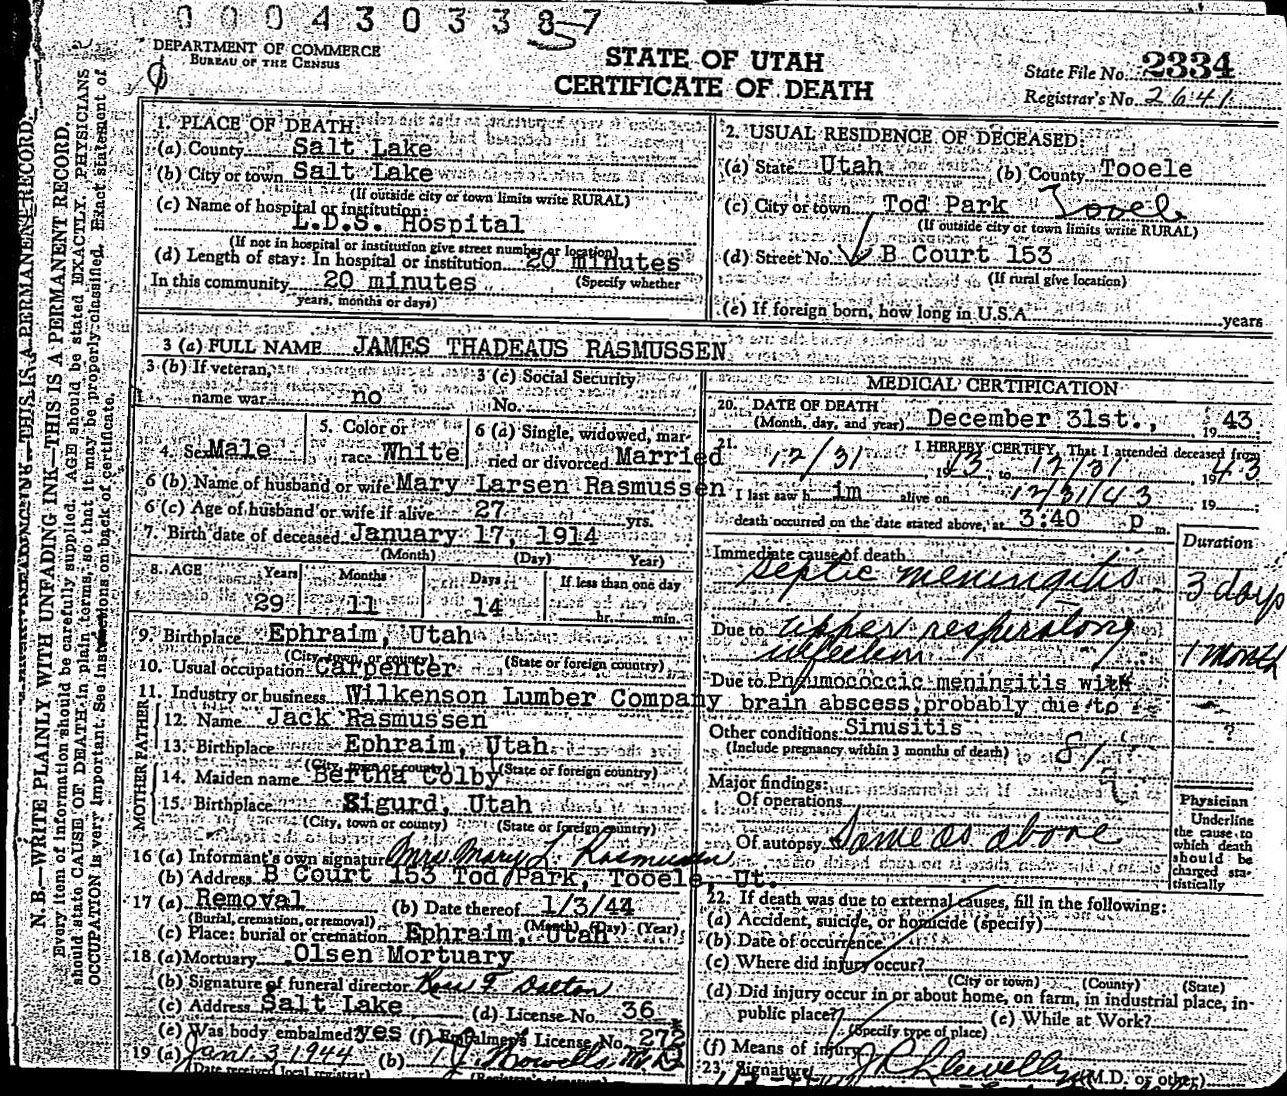 0 0 0 4 3 0 3 3 8 7
5
DEPARTMENT OF COMMERCE
BUREAU OF THE CENSUS
STATE OF UTAH
CERTIFICATE OF DEATH
State File No. 2334
Registrar's No. 2641
N. B.—WRITE PLAINLY WITH UNFADING INK—THIS IS A PERMANENT RECORD.
Every item of information should be carefully supplied. AGE should be stated EXACTLY. PHYSICIANS
should state CAUSE OF DEATH in plain terms, so that it may be properly classified. Exact statement of
OCCUPATION is very important. See instructions on back of certificate.
1. PLACE OF DEATH:
(a) County Salt Lake
(b) City or town Salt Lake
(If outside city or town limits write RURAL)
(c) Name of hospital or institution:
L.D.S. Hospital
(If not in hospital or institution give street number or location)
(d) Length of stay: In hospital or institution 20 minutes
In this community 20 minutes (Specify whether
years, months or days)
2. USUAL RESIDENCE OF DECEASED:
(a) State Utah (b) County Tooele
(c) City or town Tod Park Tooele
(If outside city or town limits write RURAL)
(d) Street No. B Court 153
(If rural give location)
(e) If foreign born, how long in U.S.A. years
3 (a) FULL NAME JAMES THADEAUS RASMUSSEN
3 (b) If veteran,
name war no
3 (c) Social Security
No.
4. Sex Male
5. Color or
race White
6 (a) Single, widowed, mar-
ried or divorced Married
6 (b) Name of husband or wife Mary Larsen Rasmussen
6 (c) Age of husband or wife if alive 27 yrs.
7. Birth date of deceased January 17, 1914
(Month) (Day) Year)
8. AGE Years Months Days If less than one day
29 11 14 hr. min.
9. Birthplace Ephraim, Utah
(City, town, or county) (State or foreign country)
10. Usual occupation Carpenter
11. Industry or business Wilkenson Lumber Company
FATHER
12. Name Jack Rasmussen
13. Birthplace Ephraim, Utah
(City, town or county) (State or foreign country)
MOTHER
14. Maiden name Bertha Colby
15. Birthplace Sigurd, Utah
(City, town or county) (State or foreign country)
16 (a) Informant's own signature Mrs Mary L. Rasmussen
(b) Address B Court 153 Tod Park, Tooele, Ut.
17 (a) Removal (b) Date thereof 1/3/44
(Burial, cremation, or removal) (Month) (Day) (Year)
(c) Place: burial or cremation Ephraim, Utah
18. (a) Mortuary Olsen Mortuary
(b) Signature of funeral director
(c) Address Salt Lake (d) License No. 36
(e) Was body embalmed? yes (f) Embalmer's License No. 272
19 (a) Jan. 3 1944 (b)
(Date received local registrar) (Registrar's signature)
MEDICAL CERTIFICATION
20. DATE OF DEATH
(Month, day, and year) December 31st., 19 43
21. I HEREBY CERTIFY, That I attended deceased from
12/31 1943, to 12/31, 1943
I last saw him alive on 12/31/43 19
death occurred on the date stated above, at 3:40 p m.
Duration
Immediate cause of death
septic meningitis 3 days
Due to upper respiratory
infection 1 month
Due to Pneumococcic meningitis with
brain abscess, probably due to
Other conditions Sinusitis ?
(Include pregnancy within 3 months of death) 81
Major findings:
Of operations
Of autopsy Same as above
Physician
Underline
the cause to
which death
should be
charged sta-
tistically
22. If death was due to external causes, fill in the following:
(a) Accident, suicide, or homicide (specify)
(b) Date of occurrence
(c) Where did injury occur?
(City or town) (County) (State)
(d) Did injury occur in or about home, on farm, in industrial place, in-
public place? (e) While at Work?
(Specify type of place)
(f) Means of injury
23. Signature (M.D. or other)